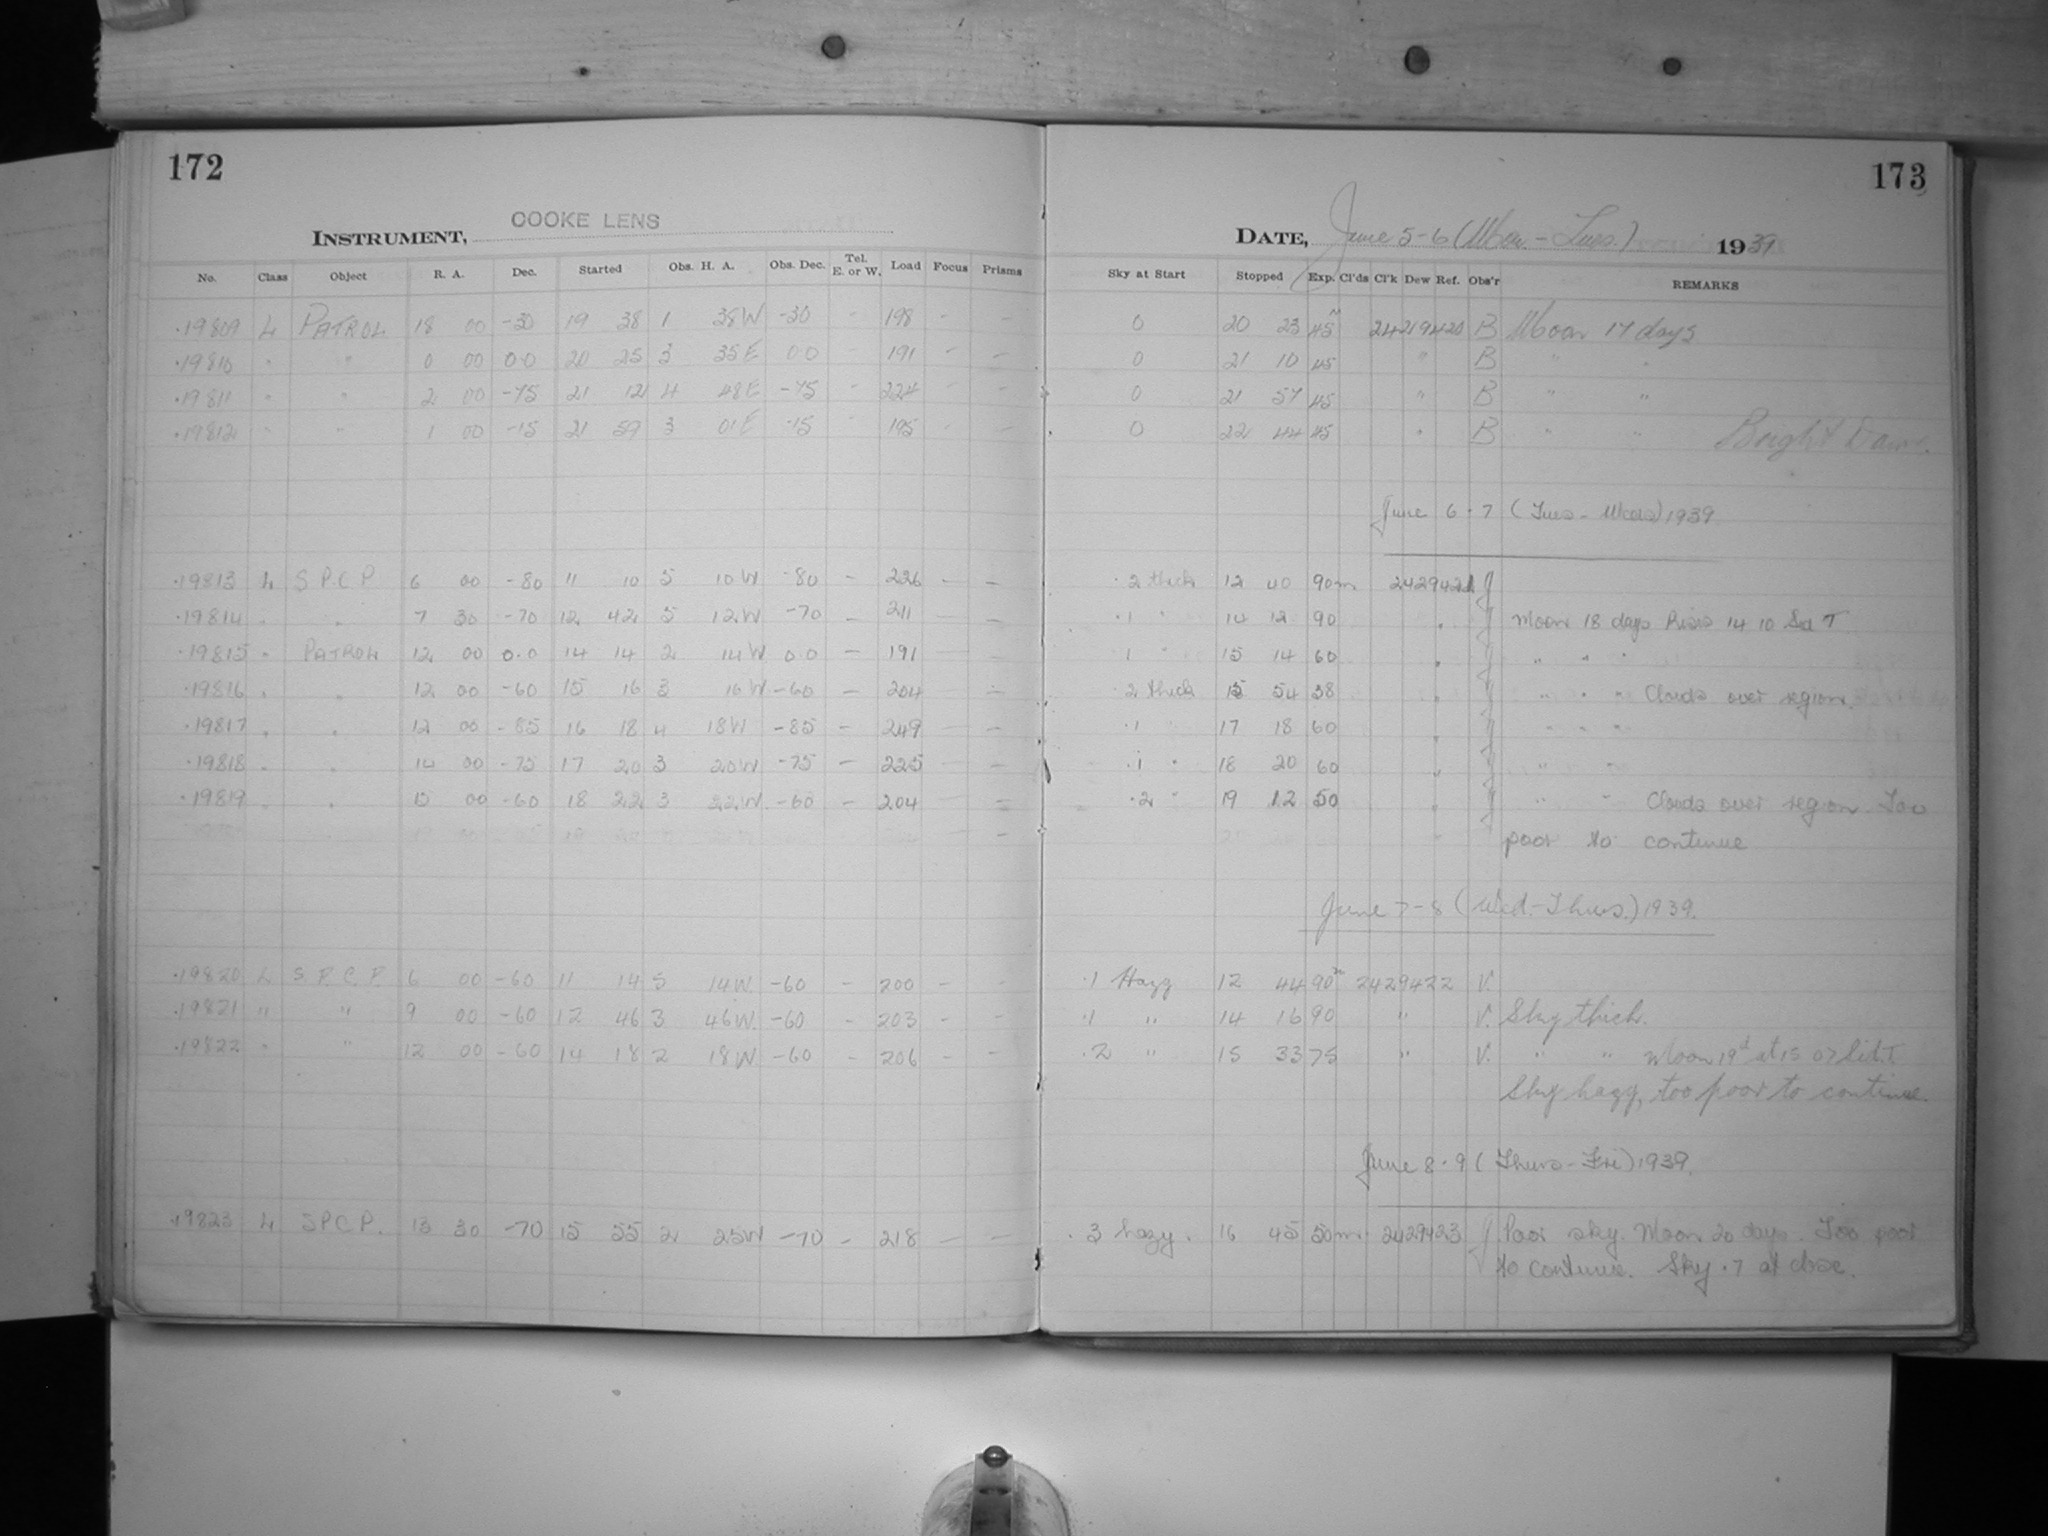 172
INSTRUMENT, COOKE LENS
No. Class Object R. A. Dec. Started Obs. H. A. Obs. Dec. Tel. E. or W. Load Focus Prisms
19809 L PATROL 18 00 -30 19 38 1 38W -30 - 198 - -
19810 " " 0 00 00 20 25 3 35E 00 - 191 - -
19811 " " 2 00 -75 21 12 4 48E -75 - 224 - -
19812 " " 1 00 -15 21 59 3 01E -15 - 195 - -
19813 L S.P.C.P. 6 00 -80 11 10 5 10W -80 - 226 - -
19814 " " 7 30 -70 12 42 5 12W -70 - 211 - -
19815 " PATROL 12 00 0.0 14 14 2 14W 00 - 191 - -
19816 " " 12 00 -60 15 16 3 16W -60 - 204 - -
19817 " " 12 00 -85 16 18 4 18W -85 - 249 - -
19818 " " 14 00 -75 17 20 3 20W -75 - 225 - -
19819 " " 15 00 -60 18 22 3 22W -60 - 204 - -
19820 L S.P.C.P. 6 00 -60 11 14 5 14W -60 - 200 - -
19821 " " 9 00 -60 12 46 3 46W -60 - 203 - -
19822 " " 12 00 -60 14 18 2 18W -60 - 206 - -
19823 L S.P.C.P. 13 30 -70 15 55 2 25W -70 - 218 - -
173
DATE, June 5-6 (Mon-Tues.) 1939
Sky at Start Stopped Exp. Cl'ds Cl'k Dew Ref. Obs'r REMARKS
0 20 23 45m 2429420 B Moon 17 days
0 21 10 45 " B " "
0 21 57 45 " B " "
0 22 44 45 " B " " Bright Dawn.
June 6-7 (Tues-Weds) 1939
.2 thick 12 40 90m 2429421 J
.1 " 14 12 90 " J Moon 18 days Rises 14 10 Sid T
.1 " 15 14 60 " J " " "
.2 thick 15 54 38 " J " " " Clouds over region.
.1 17 18 60 " J " " "
.1 " 18 20 60 " J " "
.2 " 19 12 50 " J " " Clouds over region. Too
poor to continue
June 7-8 (Wed.-Thurs.) 1939.
.1 Hazy 12 44 90m 2429422 V.
.1 " 14 16 90 " V. Sky thick.
.2 " 15 33 75 " V. " " Moon 19d at 15 07 Sid.T.
Sky hazy, too poor to continue.
June 8-9 (Thurs-Fri) 1939.
.3 hazy. 16 45 50m 2429423 J Poor sky. Moon 20 days. Too poor
to continue. Sky .7 at close.